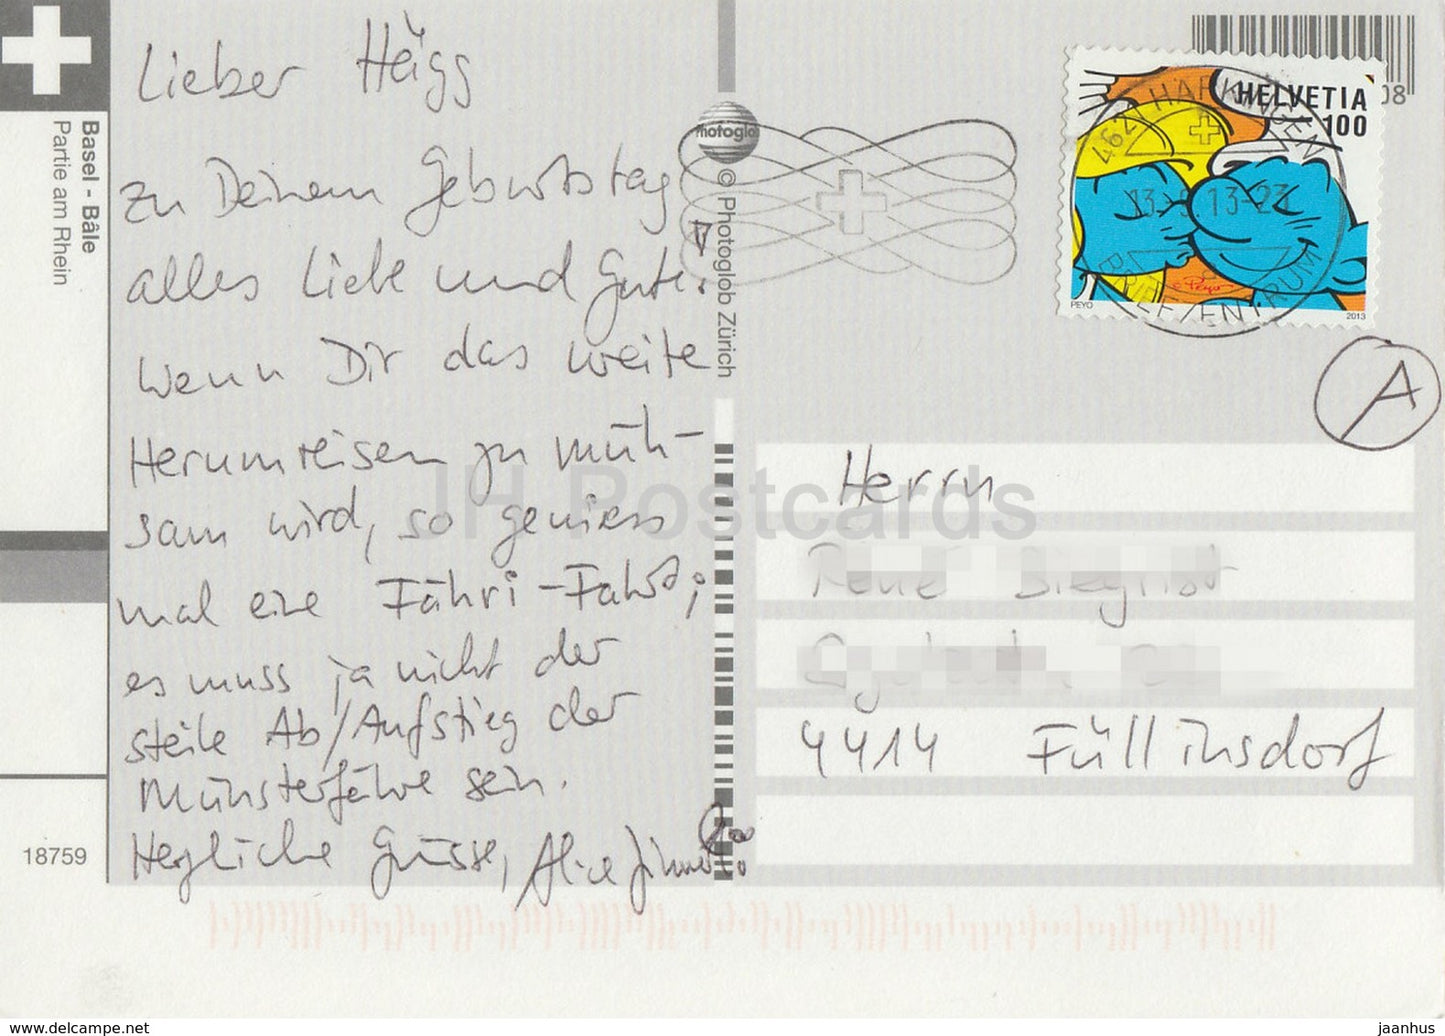 Basel - Bâle
Partie am Rhein
18759
Lieber Häigg
zu Deinem Geburtstag
alles Liebe und Gute!
Wenn Dir das weite
Herumreisen zu müh-
sam wird, so geniess
mal eine Fähri-Fahrt;
es muss ja nicht der
steile Ab/Aufstieg der
Münsterfähre sein.
Herzliche Grüsse, Alice
Photoglob
© Photoglob Zürich
HELVETIA
100
08
4621 HÄRKINGEN
13-23
BRIEFZENTRUM
© Peyo
PEYO
2013
A
Herrn
René
4414 Füllinsdorf
JH Postcards
www.delcampe.net
jaanhus